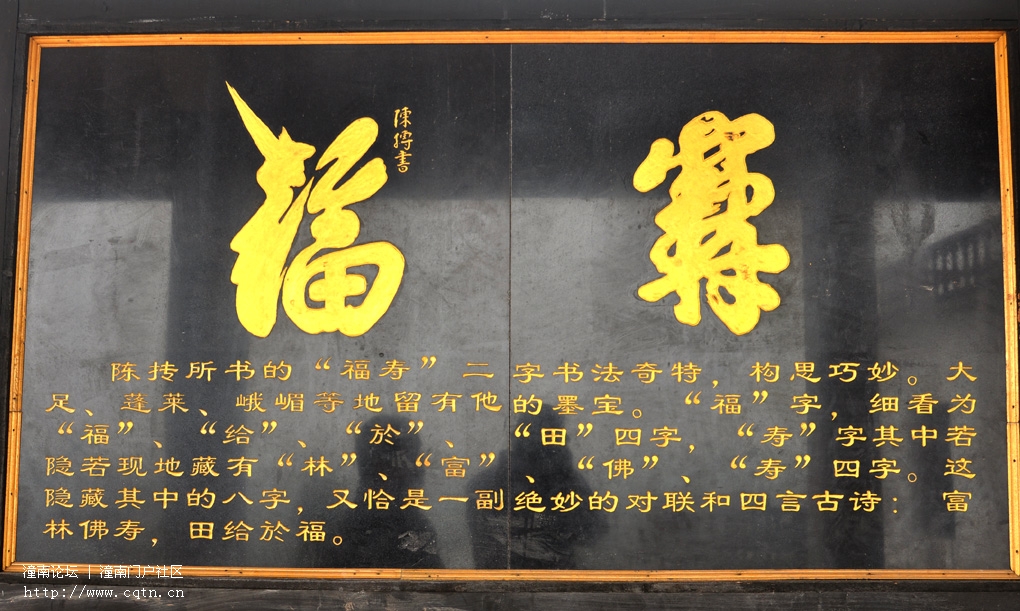 福
陳摶書
寿
陈抟所书的“福寿”二字书法奇特，构思巧妙。大
足、蓬莱、峨嵋等地留有他的墨宝。“福”字，细看为
“福”、“给”、“於”、“田”四字，“寿”字其中若
隐若现地藏有“林”、“富”、“佛”、“寿”四字。这
隐藏其中的八字，又恰是一副绝妙的对联和四言古诗：富
林佛寿，田给於福。
潼南论坛 | 潼南门户社区
http://www.cqtn.cn